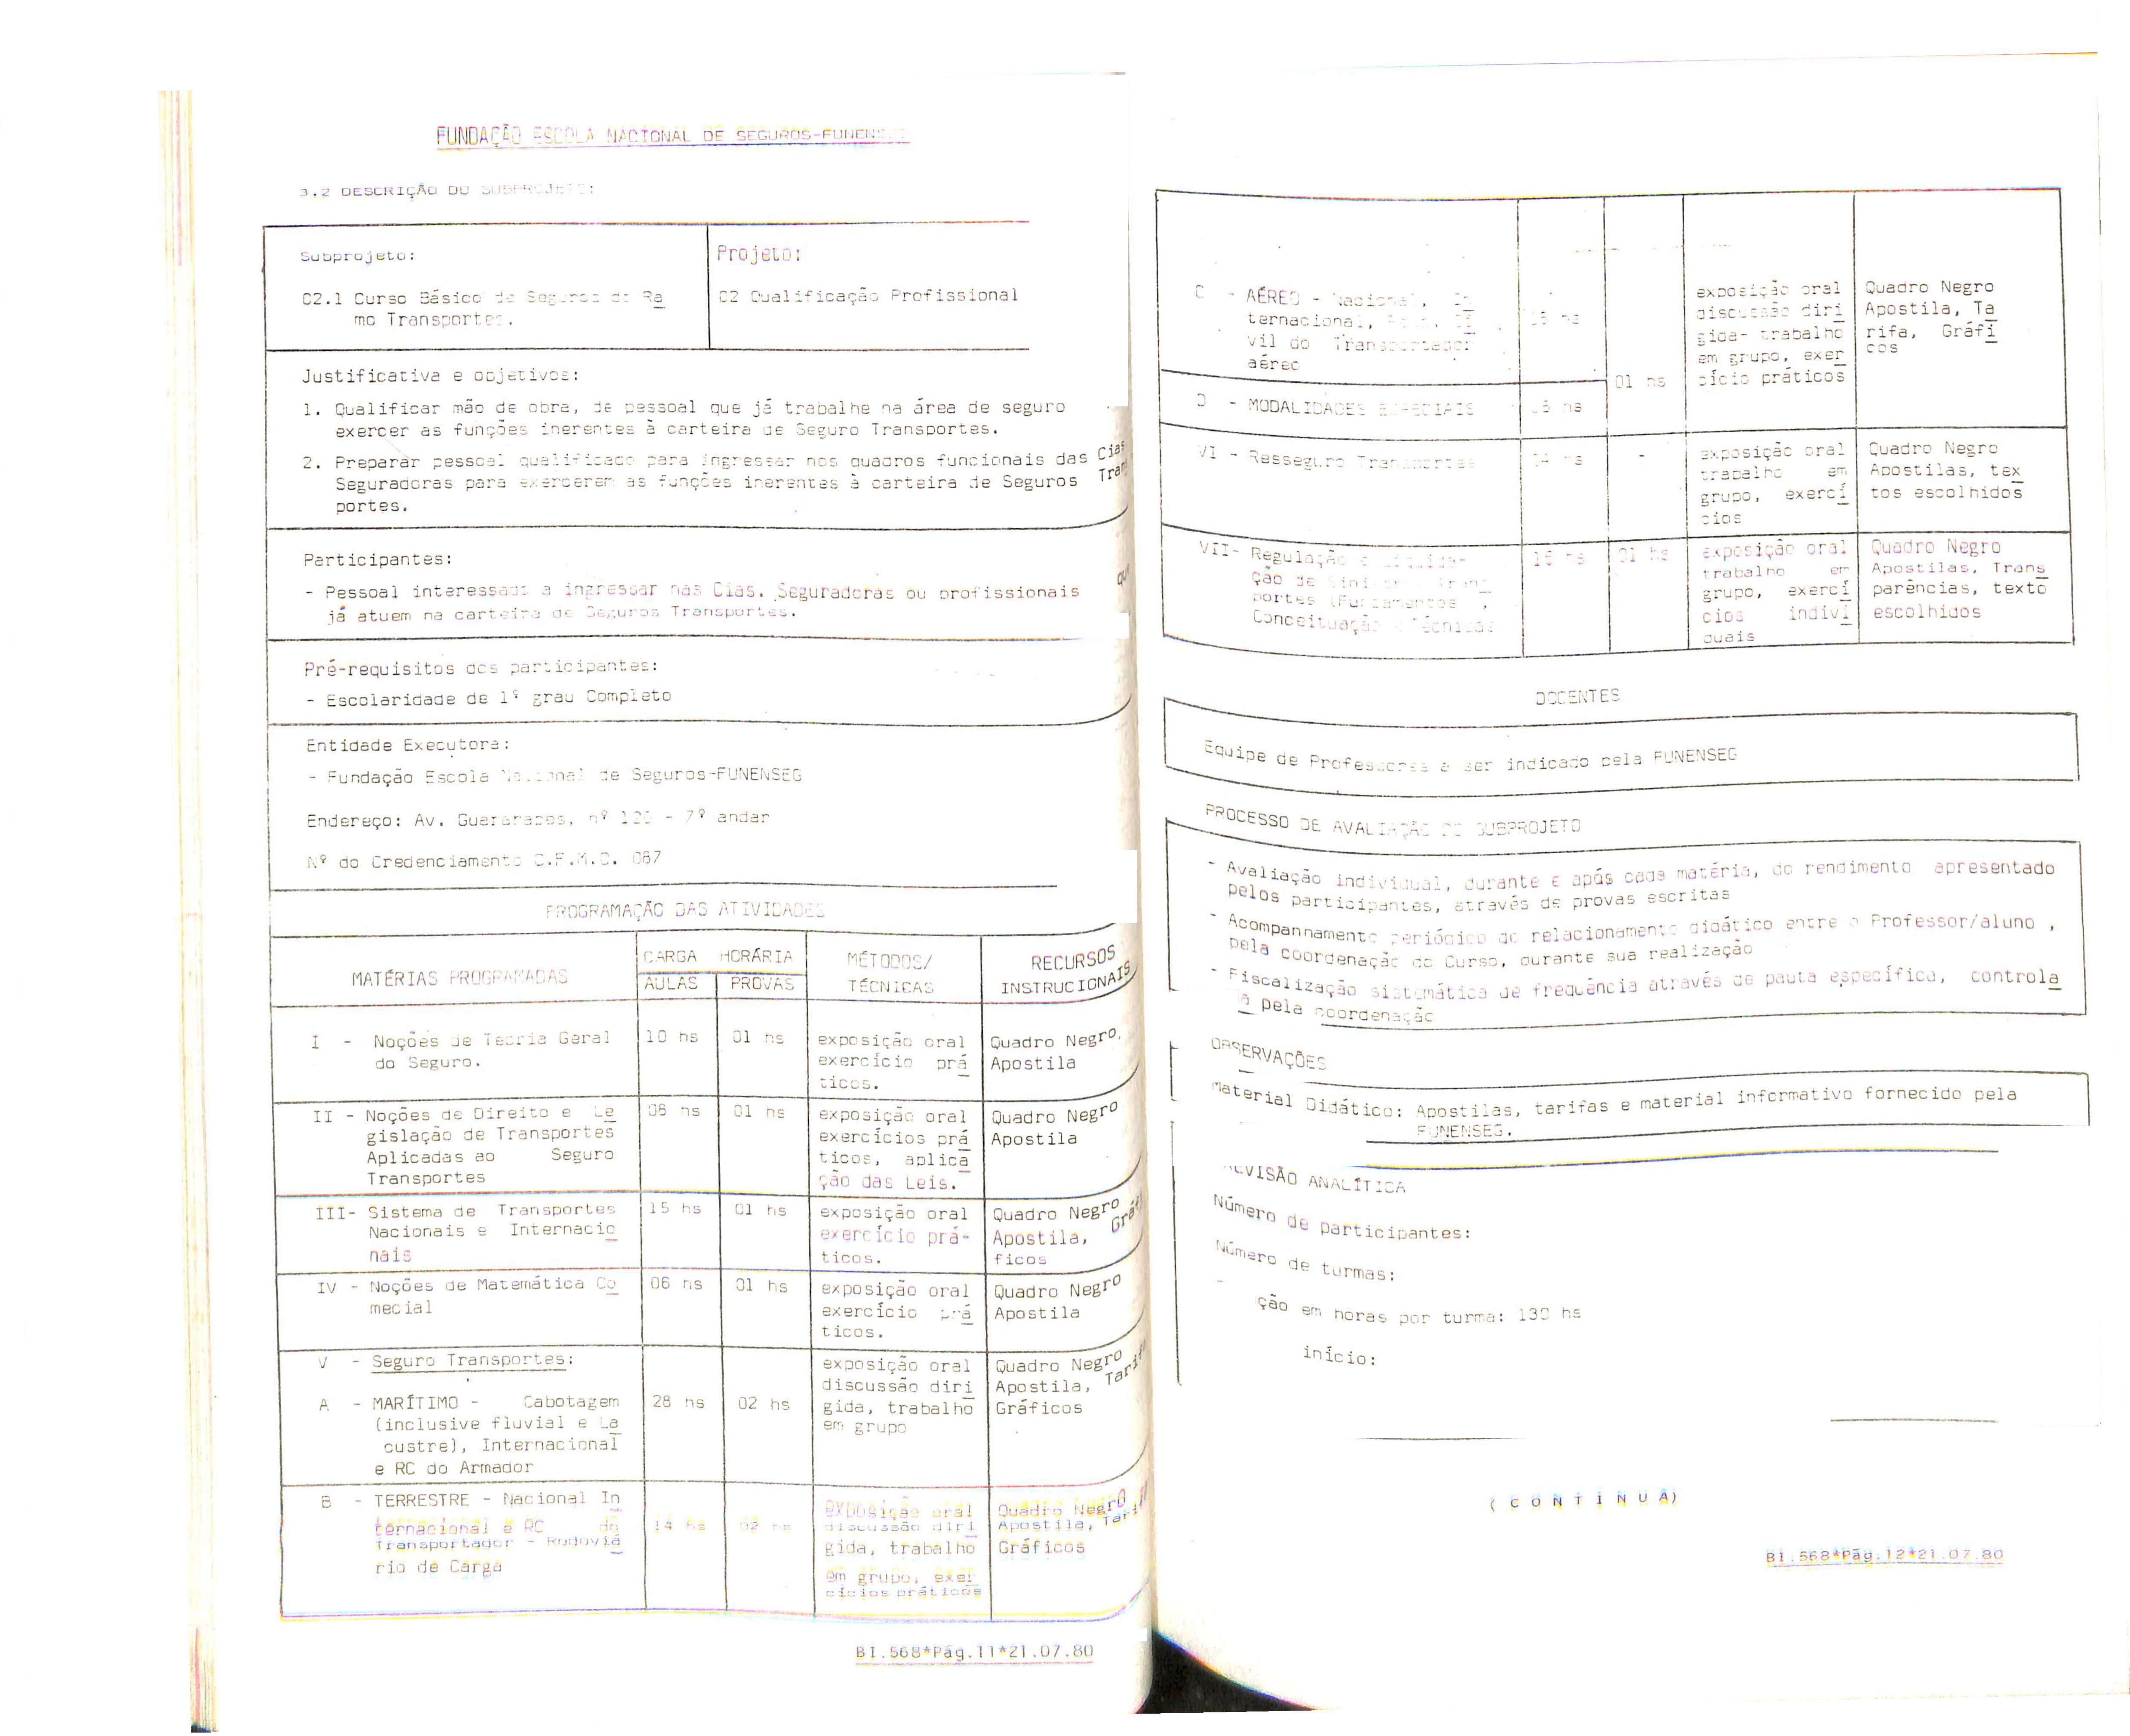 FUNDAÇÃO ESCOLA NACIONAL DE SEGUROS-FUNENSEG
3.2 DESCRIÇÃO DO SUBPROJETO:
Subprojeto:
C2.1 Curso Básico de Seguros do Ra
mo Transportes.
Projeto:
C2 Qualificação Profissional
Justificativa e objetivos:
1. Qualificar mão de obra, de pessoal que já trabalhe na área de seguro
exercer as funções inerentes à carteira de Seguro Transportes.
2. Preparar pessoal qualificado para ingressar nos quadros funcionais das Cias
Seguradoras para exercerem as funções inerentes à carteira de Seguros Trans
portes.
Participantes:
- Pessoal interessado a ingressar nas Cias. Seguradoras ou profissionais que
já atuem na carteira de Seguros Transportes.
Pré-requisitos dos participantes:
- Escolaridade de 1º grau Completo
Entidade Executora:
- Fundação Escola Nacional de Seguros-FUNENSEG
Endereço: Av. Guararapes, nº - 7º andar
Nº do Credenciamento C.F.M.O. 087
PROGRAMAÇÃO DAS ATIVIDADES
MATÉRIAS PROGRAMADAS
CARGA HORÁRIA
AULAS PROVAS
MÉTODOS/
TÉCNICAS
RECURSOS
INSTRUCIONAIS
I - Noções de Teoria Geral
do Seguro.
10 hs 01 hs
exposição oral
exercício prá
ticos.
Quadro Negro,
Apostila
II - Noções de Direito e Le
gislação de Transportes
Aplicadas ao Seguro
Transportes
06 hs 01 hs
exposição oral
exercícios prá
ticos, aplica
ção das Leis.
Quadro Negro
Apostila
III- Sistema de Transportes
Nacionais e Internacio
nais
15 hs 01 hs
exposição oral
exercício prá-
ticos.
Quadro Negro
Apostila, Grá
ficos
IV - Noções de Matemática Co
mecial
06 hs 01 hs
exposição oral
exercício prá
ticos.
Quadro Negro
Apostila
V - Seguro Transportes:
A - MARÍTIMO - Cabotagem
(inclusive fluvial e La
custre), Internacional
e RC do Armador
28 hs 02 hs
exposição oral
discussão diri
gida, trabalho
em grupo
Quadro Negro
Apostila, Tarifa
Gráficos
B - TERRESTRE - Nacional In
ternacional e RC do
Transportador - Rodoviá
rio de Carga
14 hs 02 hs
exposição oral
discussão diri
gida, trabalho
em grupo, exer
cícios práticos
Quadro Negro
Apostila, Tari
Gráficos
BI.568*Pág.11*21.07.80
C - AÉREO - Nacional, In
ternacional, Ci
vil do Transportador
aéreo
01 hs
exposição oral
discussão diri
gida- trabalho
em grupo, exer
cício práticos
Quadro Negro
Apostila, Ta
rifa, Gráfi
cos
D - MODALIDADES ESPECIAIS
VI - Resseguro Transportes
04 hs -
exposição oral
trabalho em
grupo, exercí
cios
Quadro Negro
Apostilas, tex
tos escolhidos
VII- Regulação e Liquida-
ção de Sinistros Trans
portes (Fundamentos,
Conceituação e Técnicas
16 hs 01 hs
exposição oral
trabalho em
grupo, exercí
cios indivi
duais
Quadro Negro
Apostilas, Trans
parências, texto
escolhidos
DOCENTES
Equipe de Professores a ser indicado pela FUNENSEG
PROCESSO DE AVALIAÇÃO DO SUBPROJETO
- Avaliação individual, durante e após cada matéria, do rendimento apresentado
pelos participantes, através de provas escritas
- Acompanhamento periódico do relacionamento didático entre o Professor/aluno ,
pela coordenação do Curso, durante sua realização
- Fiscalização sistemática de frequência através de pauta específica, controla
a pela coordenação
OBSERVAÇÕES
Material Didático: Apostilas, tarifas e material informativo fornecido pela
FUNENSEG.
VISÃO ANALÍTICA
Número de participantes:
Número de turmas:
ção em horas por turma: 130 hs
início:
( C O N T I N U A)
BI.568*Pág.12*21.07.80